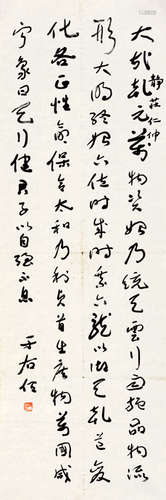 大哉乾元萬物資始乃統天雲行雨施品物流
靜莊仁仲
形大明終始六位時成時乘六龍以御天乾道變
化各正性命保合太和乃利貞首出庶物萬國咸
寧象曰天行健君子以自強不息
于右任